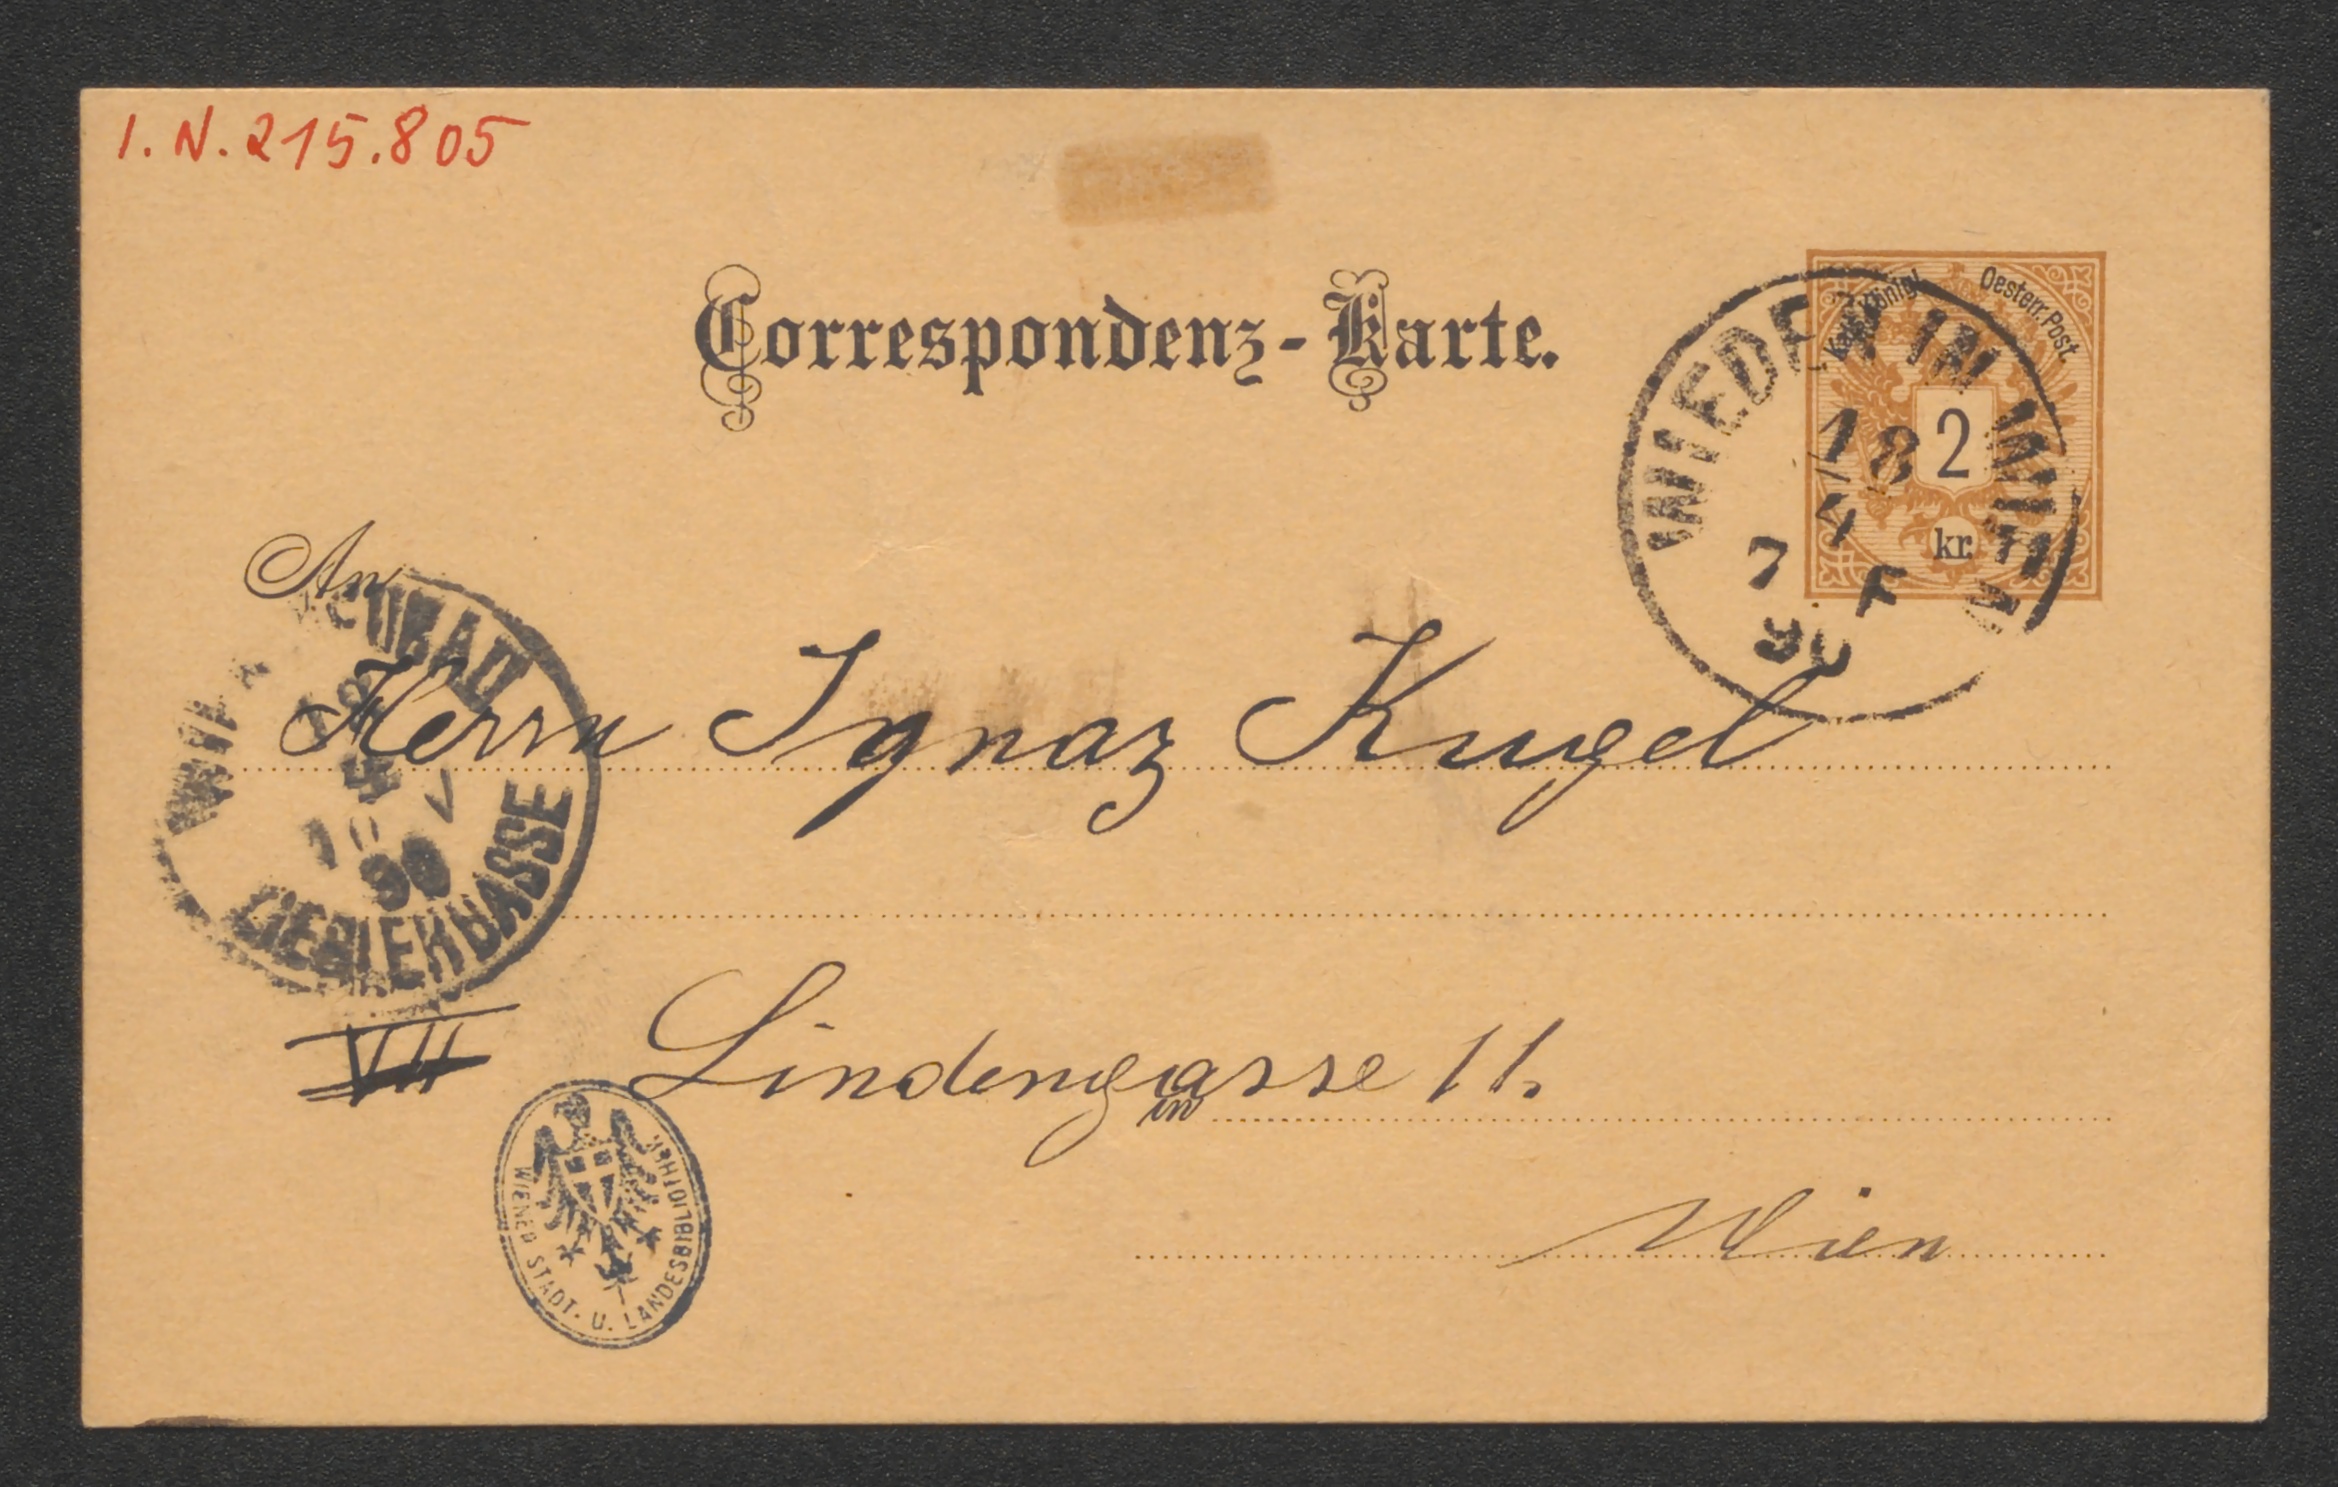 I.N. 215.805
Correspondenz-Karte.
Kais. Königl. Oesterr. Post.
2
kr.
WIEDEN IN WIEN
18
4
7 F
90
An
NEUBAU
ZIEGLERGASSE
90
Herrn Ignaz Kugel
VII Lindengasse 11.
in
Wien
WIENER STADT. U. LANDESBIBLIOTHEK